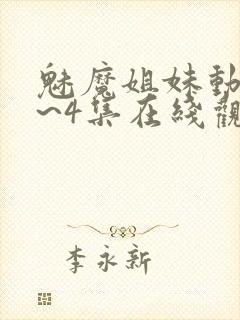 魅魔姐妹動
~4集在綫觀
李永新